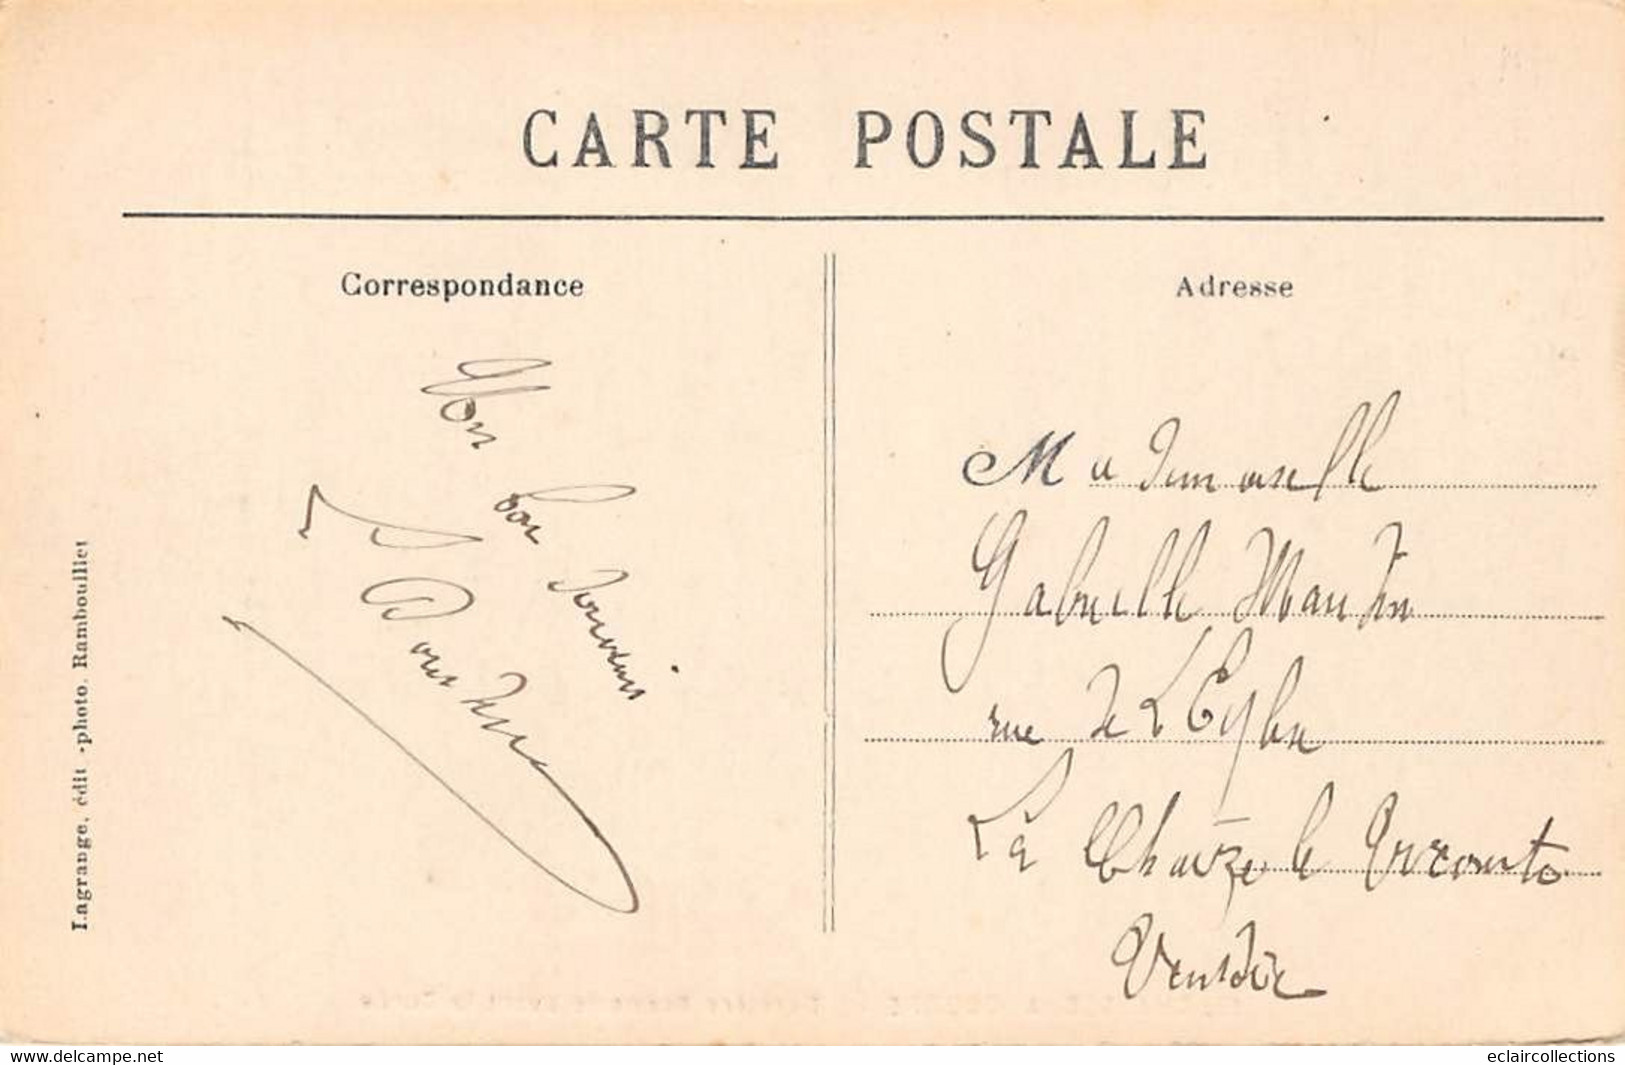 CARTE POSTALE
Correspondance
Adresse
Mon
bon souvenir
Mademoiselle
Gabrielle Martin
rue de L'Eglise
La Chaize le Vicomte
Vendée
Lagrange, édit -photo. Rambouillet
www.delcampe.net
eclaircollections